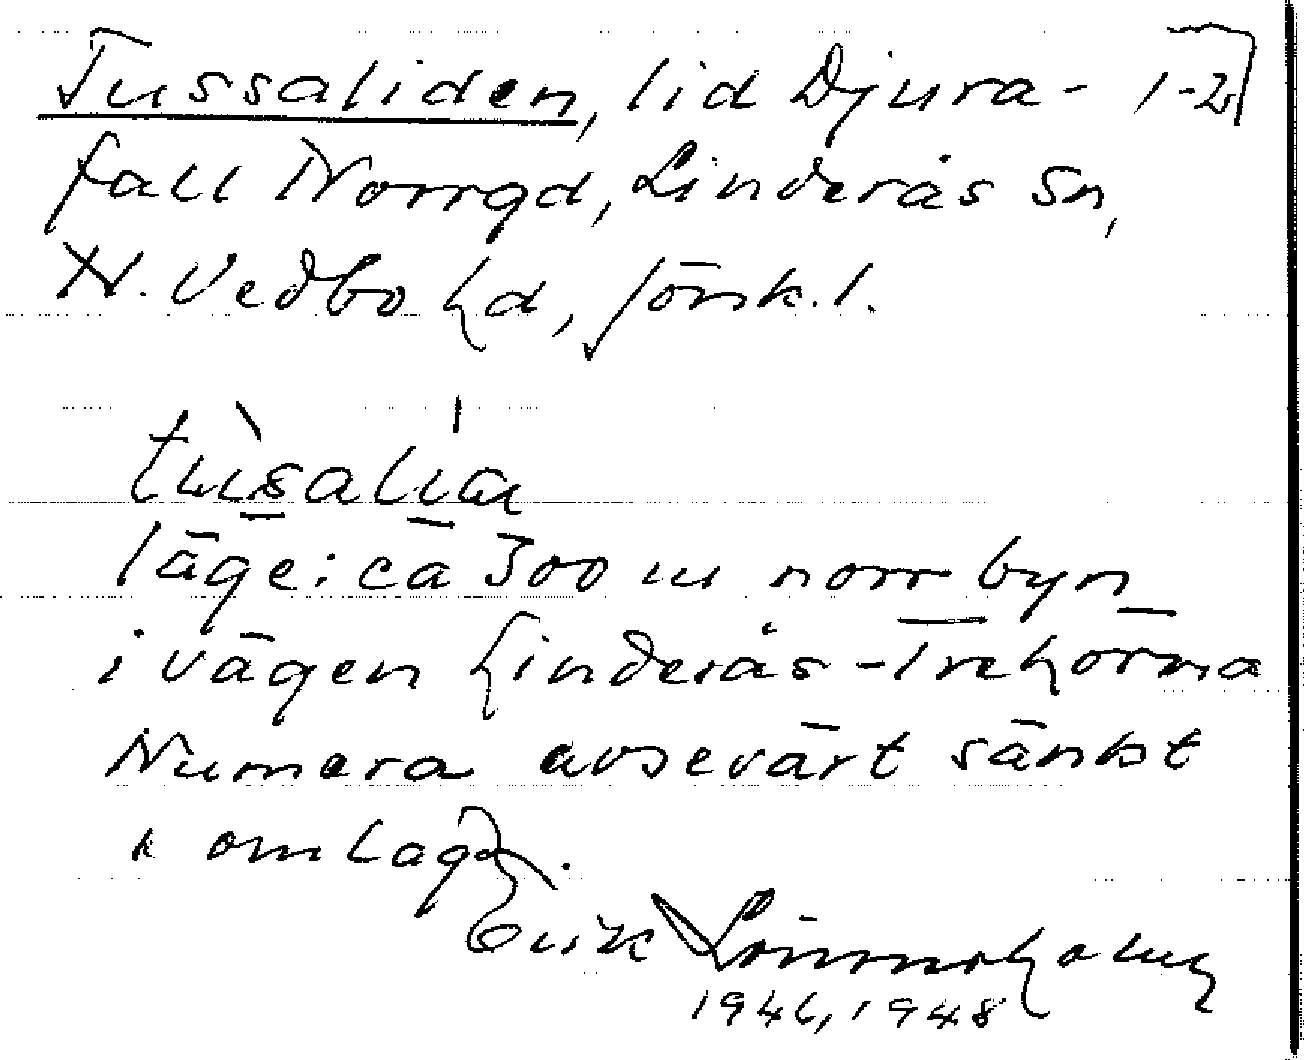 Tussaliden, lid Djura- 1-2
fall Norrgd, Linderås sn,
N. Vedbo hd, Jönk. l.
tùsalía
läge: ca 300 m norr byn
i vägen Linderås - Trehörna
Numera avsevärt sänkt
& omlagd.
Erik Lönnoholm
1946, 1948